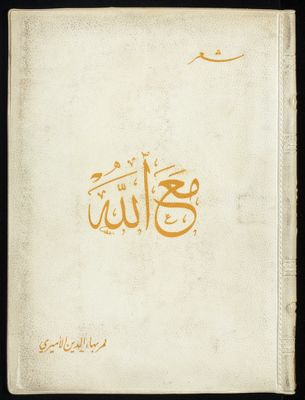 شعر
مع الله
عمر بهاء الدين الأميري